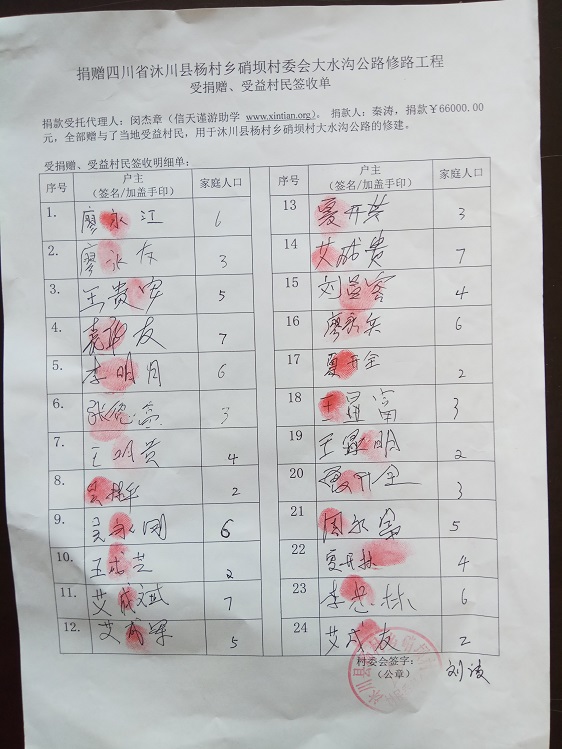 捐赠四川省沐川县杨村乡硝坝村委会大水沟公路修路工程
受捐赠、受益村民签收单
捐款受托代理人：闵杰章（信天谨游助学 www.xintian.org）。 捐款人：秦涛，捐款￥66000.00
元，全部赠与了当地受益村民，用于沐川县杨村乡硝坝村大水沟公路的修建。
受捐赠、受益村民签收明细单：
序号 户主 家庭人口
（签名/加盖手印）
1. 廖永江 6
2. 廖永友 3
3. 王贵 5
4. 友 7
5. 李明月 6
6. 张 3
7. 王明贵 4
8. 2
9. 永 6
10. 王成芝 2
11. 艾成斌 7
12. 艾成军 5
序号 户主 家庭人口
（签名/加盖手印）
13 夏开 3
14 艾成贵 7
15 刘 4
16 廖永兵 6
17 夏开全 2
18 王显富 3
19 王显明 2
20 夏开全 3
21 周永 5
22 夏开林 4
23 李忠林 6
24 艾成友 2
村委会签字： 刘
（公章）